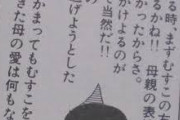 る時、まずむすこの右
るかね!! 母親の表
かったからさ。
かけよるのが
当然だ!!
げようとした
かまってもむすこを
きた母の愛は何もな